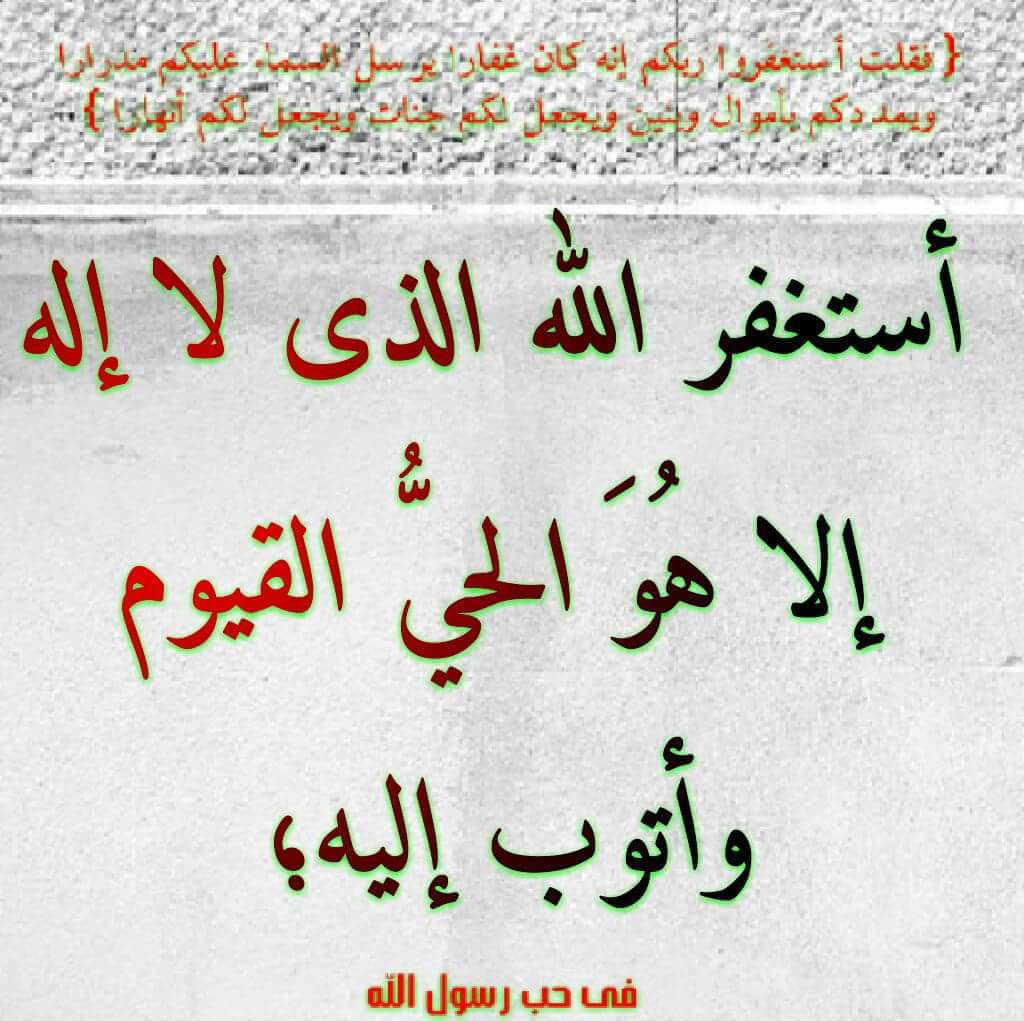 { فقلت أستغفروا ربكم إنه كان غفارا يرسل السماء عليكم مدرارا
ويمددكم بأموال وبنين ويجعل لكم جنات ويجعل لكم أنهارا }
أستغفر الله الذى لا إله
إلا هُوَ الحيُّ القيوم
وأتوب إليه؛
فى حب رسول الله